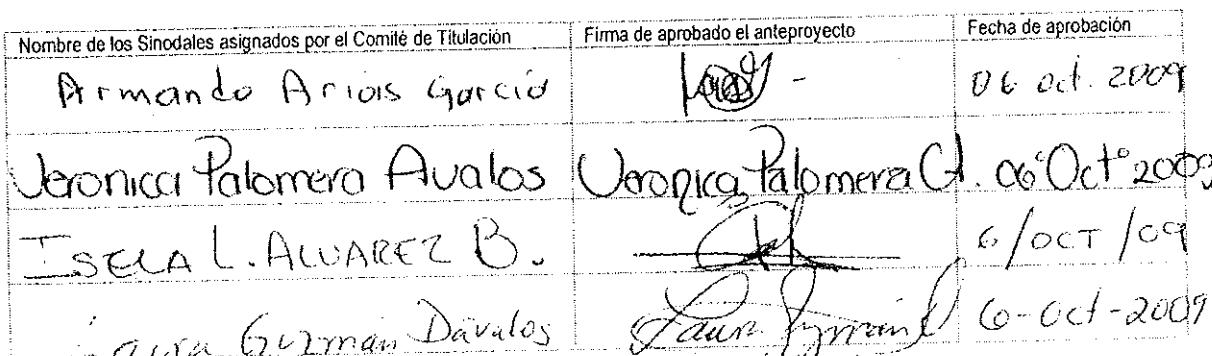 Nombre de los Sinodales asignados por el Comité de Titulación Firma de aprobado el anteproyecto Fecha de aprobación
Armando Arias García 06 oct. 2009
Veronica Palomera Avalos Veronica Palomera A. 06 Oct 2009
ISELA L. ALVAREZ B. 6/OCT/09
Laura Guzmán Dávalos Laura Guzmán D 6-Oct-2009